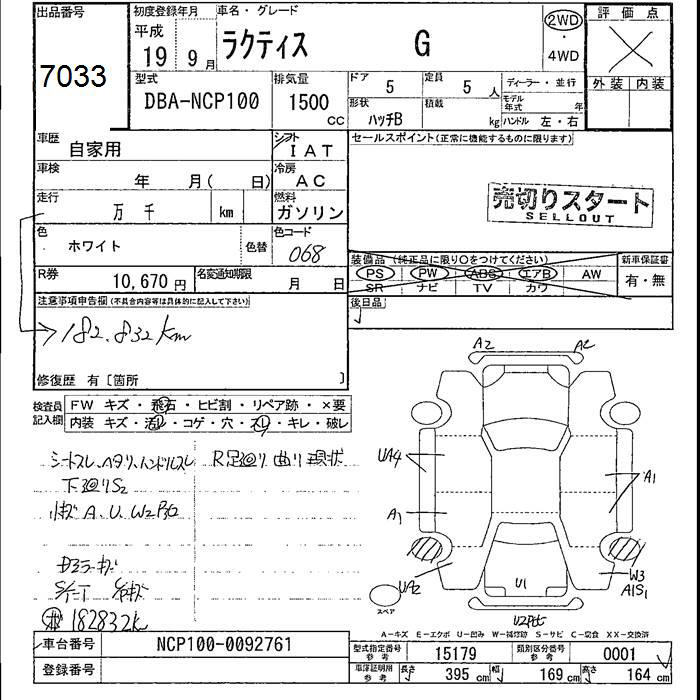 出品番号
7033
初度登録年月
平成
19 9月
車名・グレード
ラクティス G
2WD
・
4WD
評価点
外装 内装
型式
DBA-NCP100
排気量
1500
CC
ドア
5
定員
5 人
ディーラー・並行
形状
ハッチB
積載
kg
モデル
年式
年
ハンドル 左・右
車歴
自家用
シフト
IAT
セールスポイント(正常に機能するものに限ります)
車検
年 月( 日)
冷房
AC
走行
万 千 km
燃料
ガソリン
売切りスタート
SELLOUT
色
ホワイト
色替
色コード
068
装備品 (純正品に限り〇をつけてください)
PS PW ABS エアB AW
SR ナビ TV カワ
新車保証書
有・無
R券
10,670 円
名変通知期限
月 日
後日品
注意事項申告欄(不具合内容等は具体的に記入して下さい)
182.832km
修復歴 有〔箇所 〕
検査員
記入欄
FW キズ・飛石・ヒビ割・リペア跡・×要
内装 キズ・汚レ・コゲ・穴・スレ・キレ・破レ
シートスレ、ヘタリ、ハンドルスレ
R足廻り曲り現状
下廻りS2
A.U.W2
182832k
A2 A2
UA4
A1
A1
UA2
U1
W3
A1S1
スペア
A-キズ E-エクボ U-凹み W-補修跡 S-サビ C-腐食 XX-交換済
車台番号
NCP100-0092761
登録番号
型式指定番号
参考
15179
類別区分番号
参考
0001
車庫証明用
参考
長さ
395 cm
幅
169 cm
高さ
164 cm